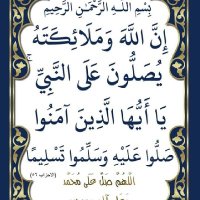 بِسْمِ اللَّهِ الرَّحْمَٰنِ الرَّحِيمِ
إِنَّ اللَّهَ وَمَلَائِكَتَهُ
يُصَلُّونَ عَلَى النَّبِيِّ ۚ
يَا أَيُّهَا الَّذِينَ آمَنُوا
صَلُّوا عَلَيْهِ وَسَلِّمُوا تَسْلِيمًا
(الاحزاب ٥٦)
اللَّهُمَّ صَلِّ عَلَى مُحَمَّدٍ